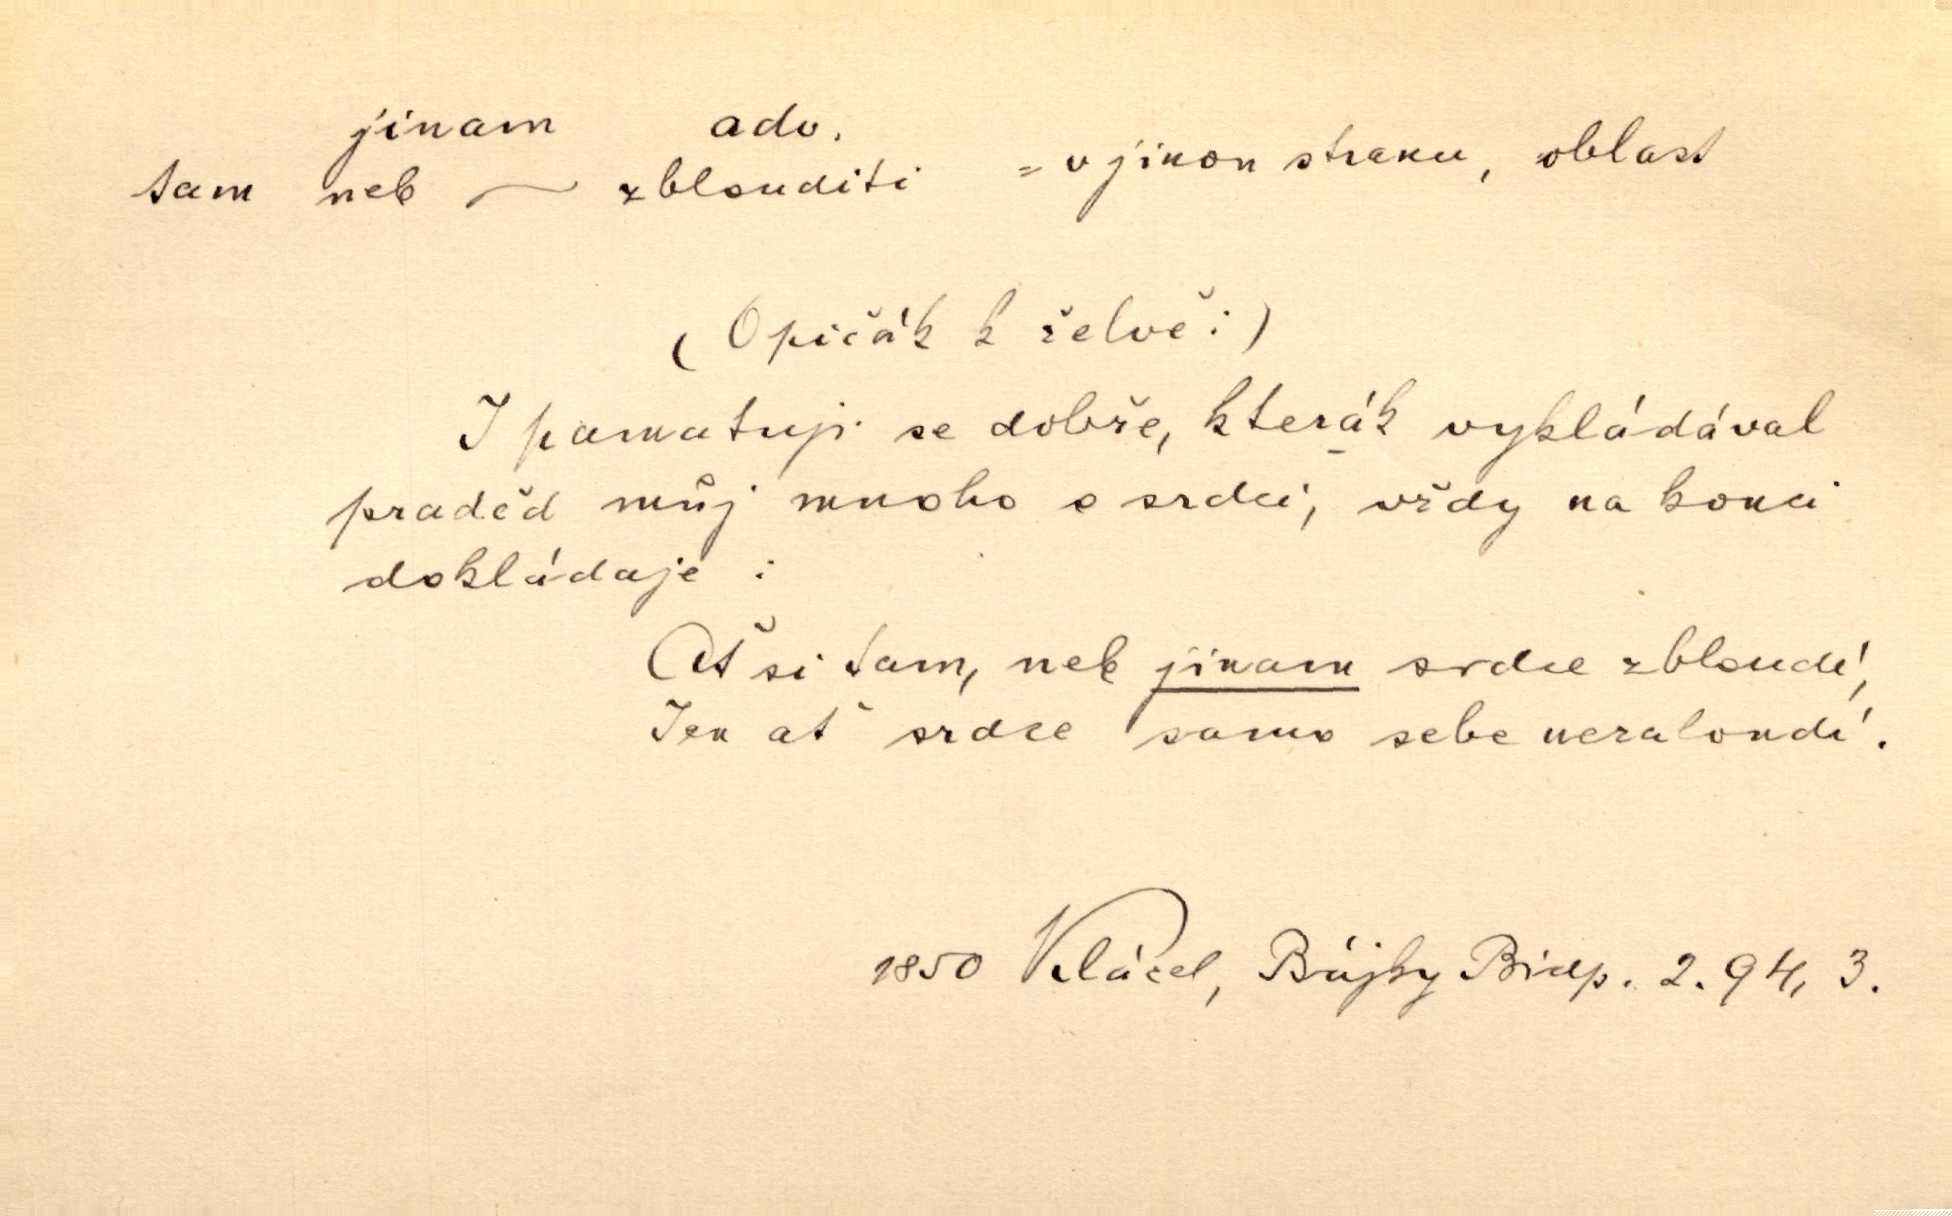 jinam adv.
tam neb — zblouditi = v jinou stranu, oblast
(Opičák k želvě:)
I pamatuji se dobře, kterák vykládával
praděd můj mnoho o srdci, vždy na konci
dokládaje :
Ať si tam, neb jinam srdce zbloudí,
Jen ať srdce samo sebe nezaloudí.
1850 Klácel, Bájky Bidp. 2. 94, 3.